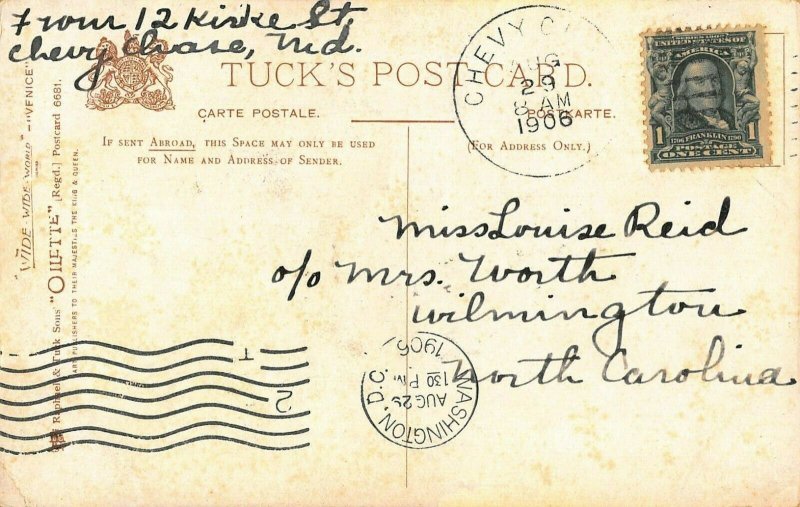 From 12 Kirke St.
Chevy Chase, Md.
TUCK'S POST CARD.
CARTE POSTALE.
POSTKARTE.
IF SENT ABROAD, THIS SPACE MAY ONLY BE USED
FOR NAME AND ADDRESS OF SENDER.
(For Address Only.)
CHEVY C
AUG
29
8 AM
1906
UNITED STATES OF
AMERICA
1 1
1706 FRANKLIN 1790
POSTAGE
ONE CENT
"WIDE-WIDE-WORLD"-"VENICE"
Raphael & Tuck Sons' "OILETTE" [Regd.] Postcard 6681.
ART PUBLISHERS TO THEIR MAJESTIES THE KING & QUEEN.
Miss Louise Reid
c/o Mrs. Worth
Wilmington
North Carolina
WASHINGTON, D.C.
AUG 29
1 30 P M
1906
T
2